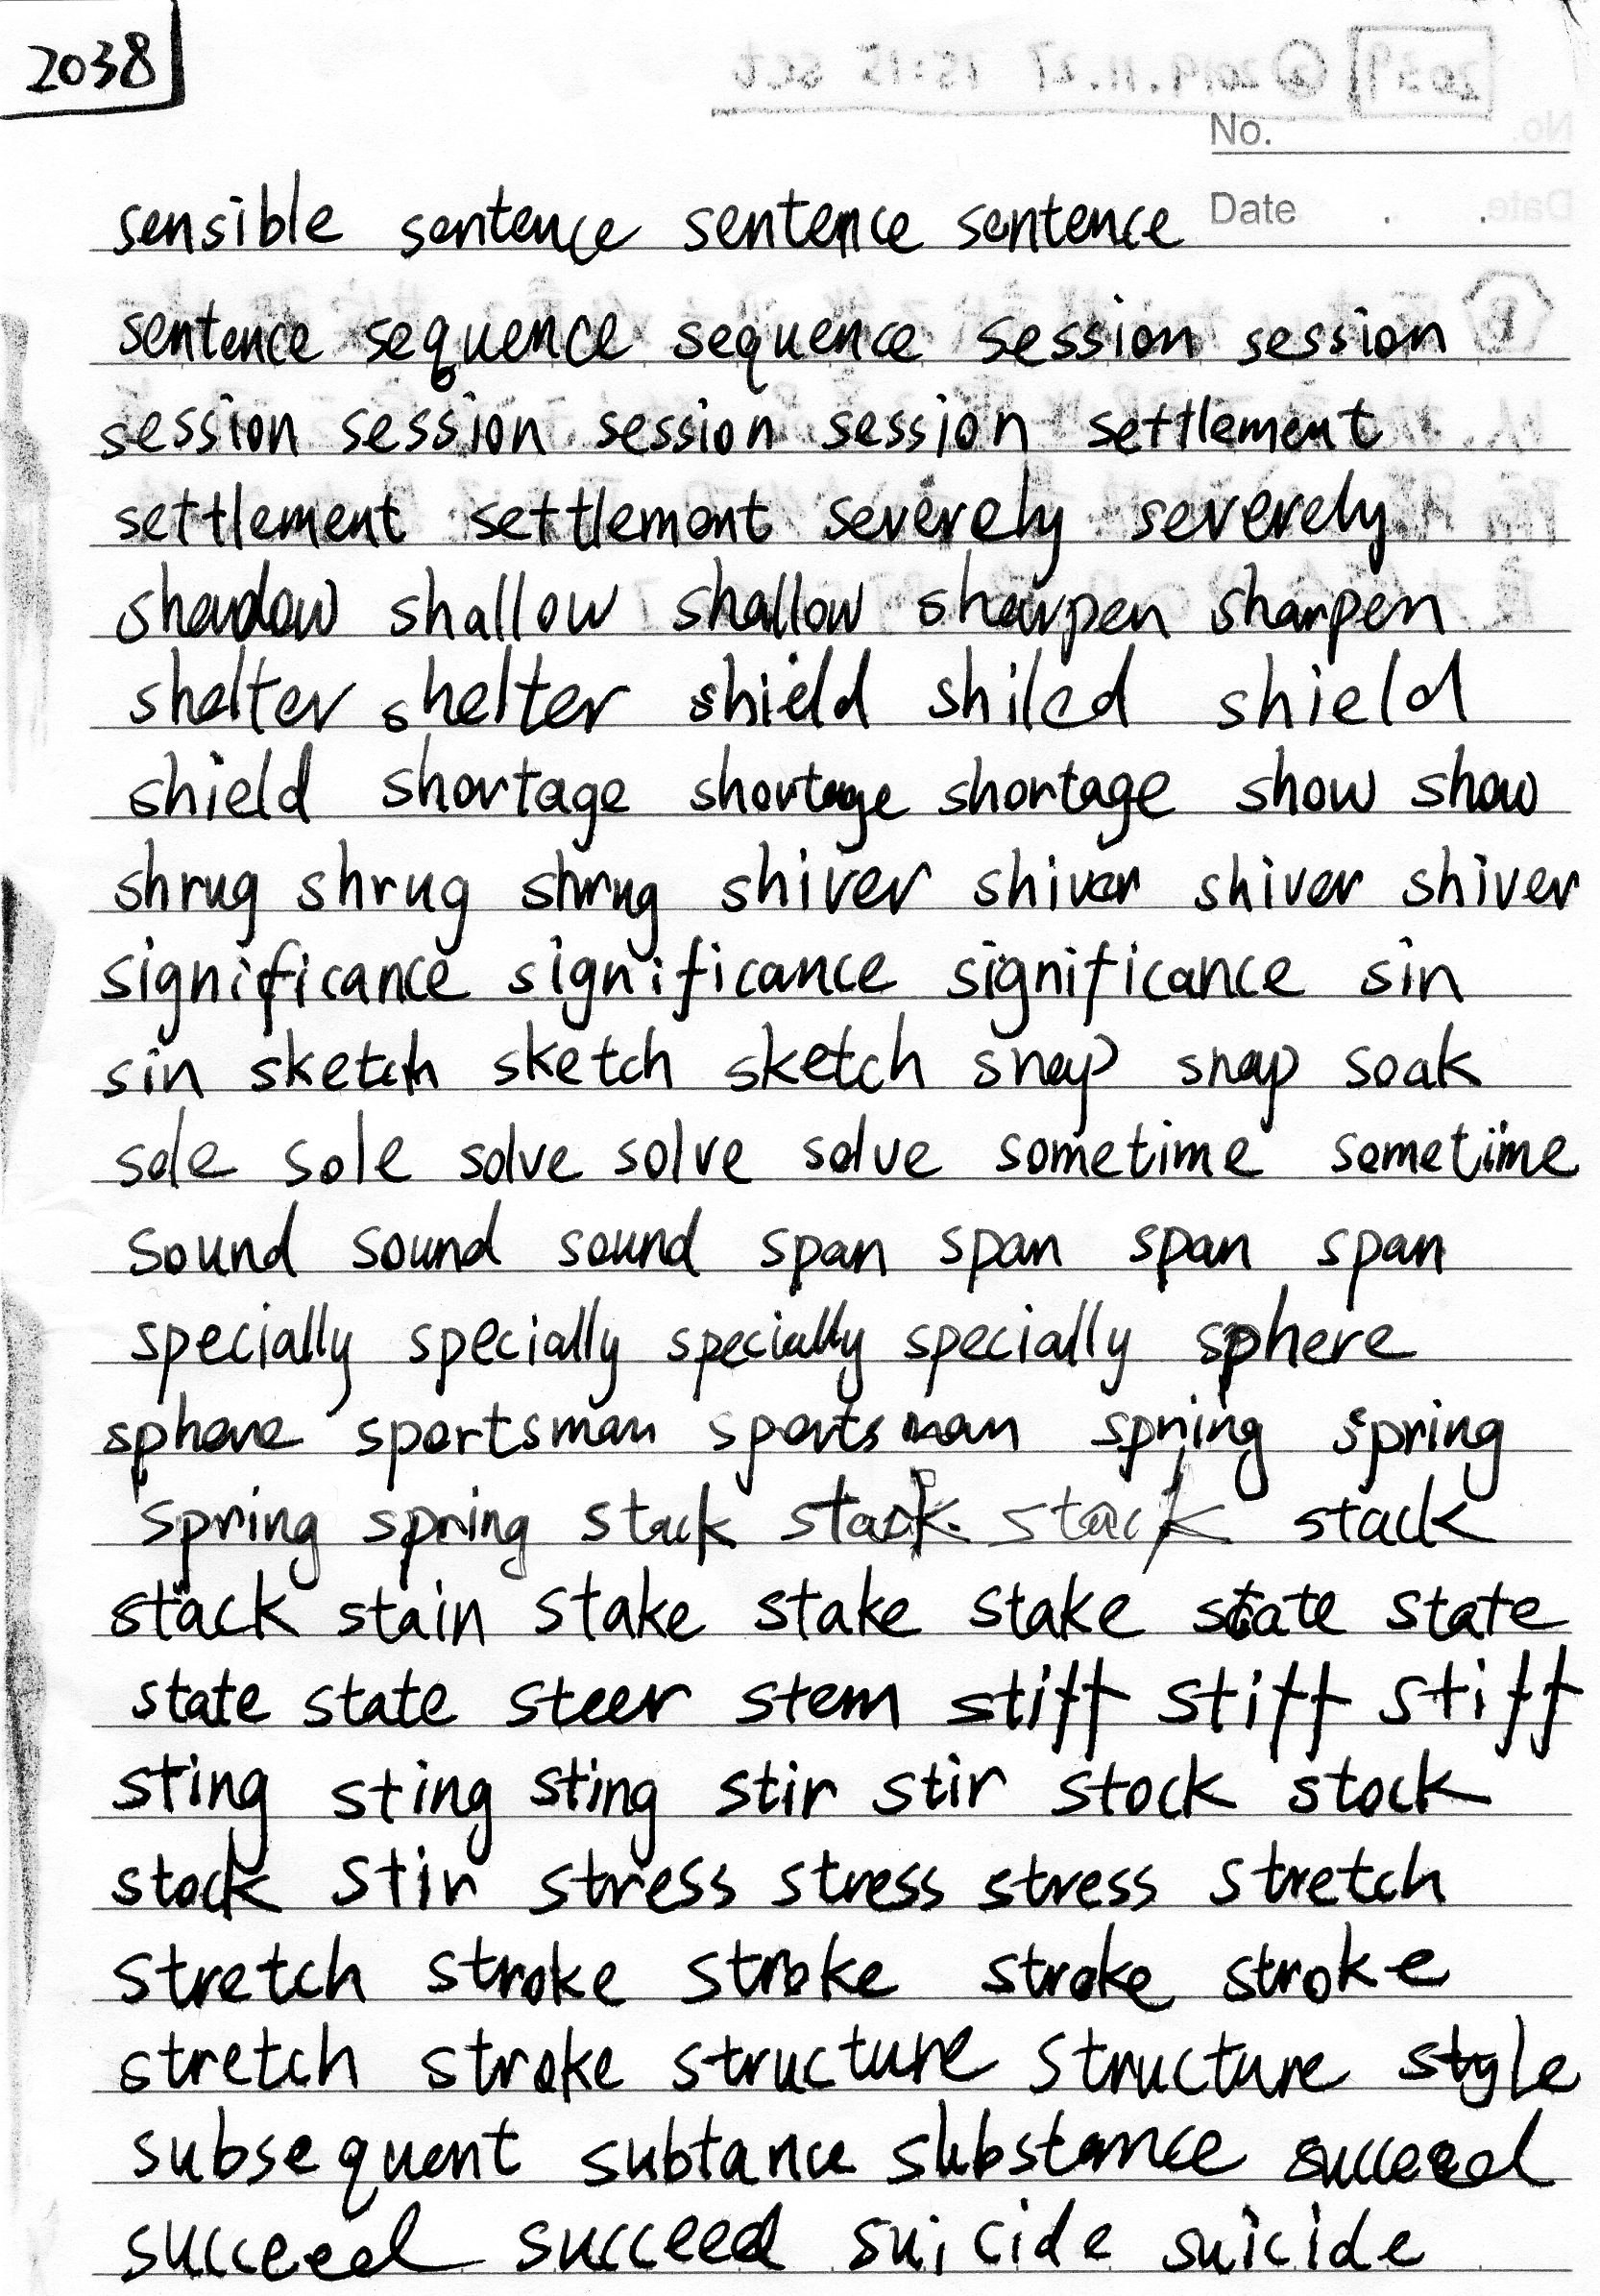 2038
No.
Date
sensible sentence sentence sentence
sentence sequence sequence session session
session session session session settlement
settlement settlement severely severely
shadow shallow shallow sharpen sharpen
shelter shelter shield shiled shield
shield shortage shortage shortage show show
shrug shrug shrug shiver shiver shiver shiver
significance significance significance sin
sin sketch sketch sketch snap snap soak
sole sole solve solve solve sometime sometime
sound sound sound span span span span
specially specially specially specially sphere
sphere sportsman sportsman spring spring
spring spring stack stack stack stack
stack stain stake stake stake state state
state state steer stem stiff stiff stiff
sting sting sting stir stir stock stock
stock stir stress stress stress stretch
stretch stroke stroke stroke stroke
stretch stroke structure structure style
subsequent subtance substance succeed
succeed succeed suicide suicide